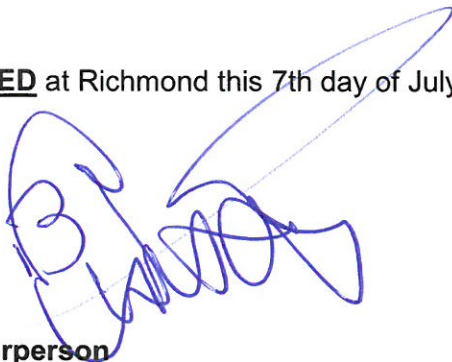 ED at Richmond this 7th day of July
rperson